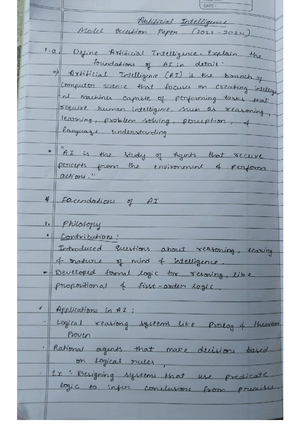 Artificial Intelligence
Model Question Paper (2023-2024)
1.a. Define Artificial Intelligence. Explain the
foundations of AI in detail.
Artificial Intelligence (AI) is the branch of
computer science that focuses on creating intellige
nt machines capable of performing tasks that
require human intelligence such as reasoning,
learning, problem solving, perception, &
language understanding
"AI is the study of Agents that receive
percepts from the environment & perform
actions."
# Foundations of AI
1. Philosopy
• Contributions:
Introduced Questions about reasoning, learing
& nature of mind & intelligence.
• Developed formal logic for resoning, like
propositional & first-order logic.
• Applications in AI:
- Logical reasong systems like Prolog & theorem
Proven
- Rational agents that make decisions based
on logical rules.
- Ex: Designing systems that use predicate
logic to infer conclusions from premises.